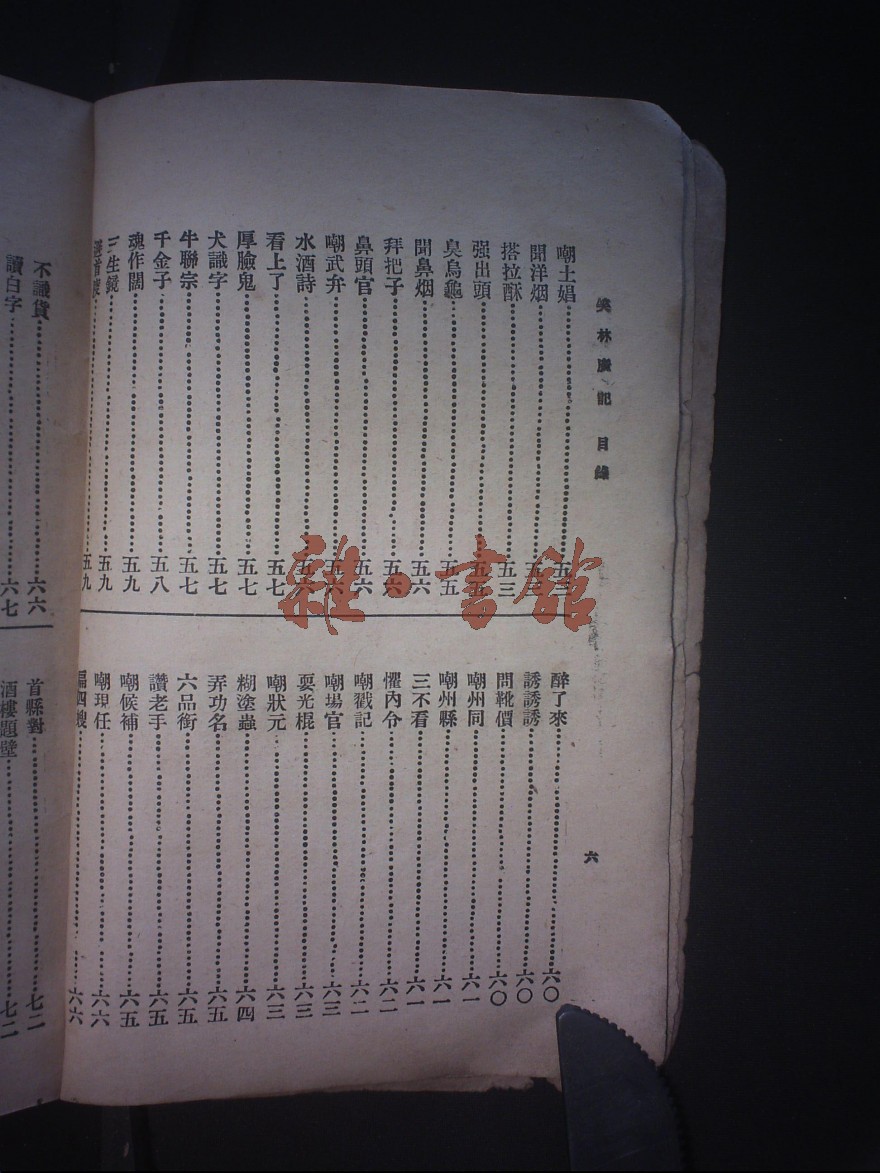 笑林廣記 目錄
六
嘲土娼
聞洋烟
搭拉酥 五三
强出頭
臭烏龜 五五
聞鼻烟 五六
拜把子 五六
鼻頭官 五六
嘲武弁 五六
水酒詩 五六
看上了 五七
厚臉鬼 五七
犬識字 五七
牛聯宗 五七
千金子 五八
魂作闊 五九
三生鏡 五九
五九
醉了來 六〇
誘誘誘 六〇
問靴價 六〇
嘲州同 六一
嘲州縣 六一
三不看 六一
懼內令 六二
嘲戳記 六二
嘲場官 六三
耍光棍 六三
嘲狀元 六三
糊塗蟲 六四
弄功名 六五
六品銜 六五
讚老手 六五
嘲候補 六五
嘲現任 六六
四嫂 六六
不識貨 六六
讀白字 六七
首縣對 七二
酒樓題壁 七二
雜·書館